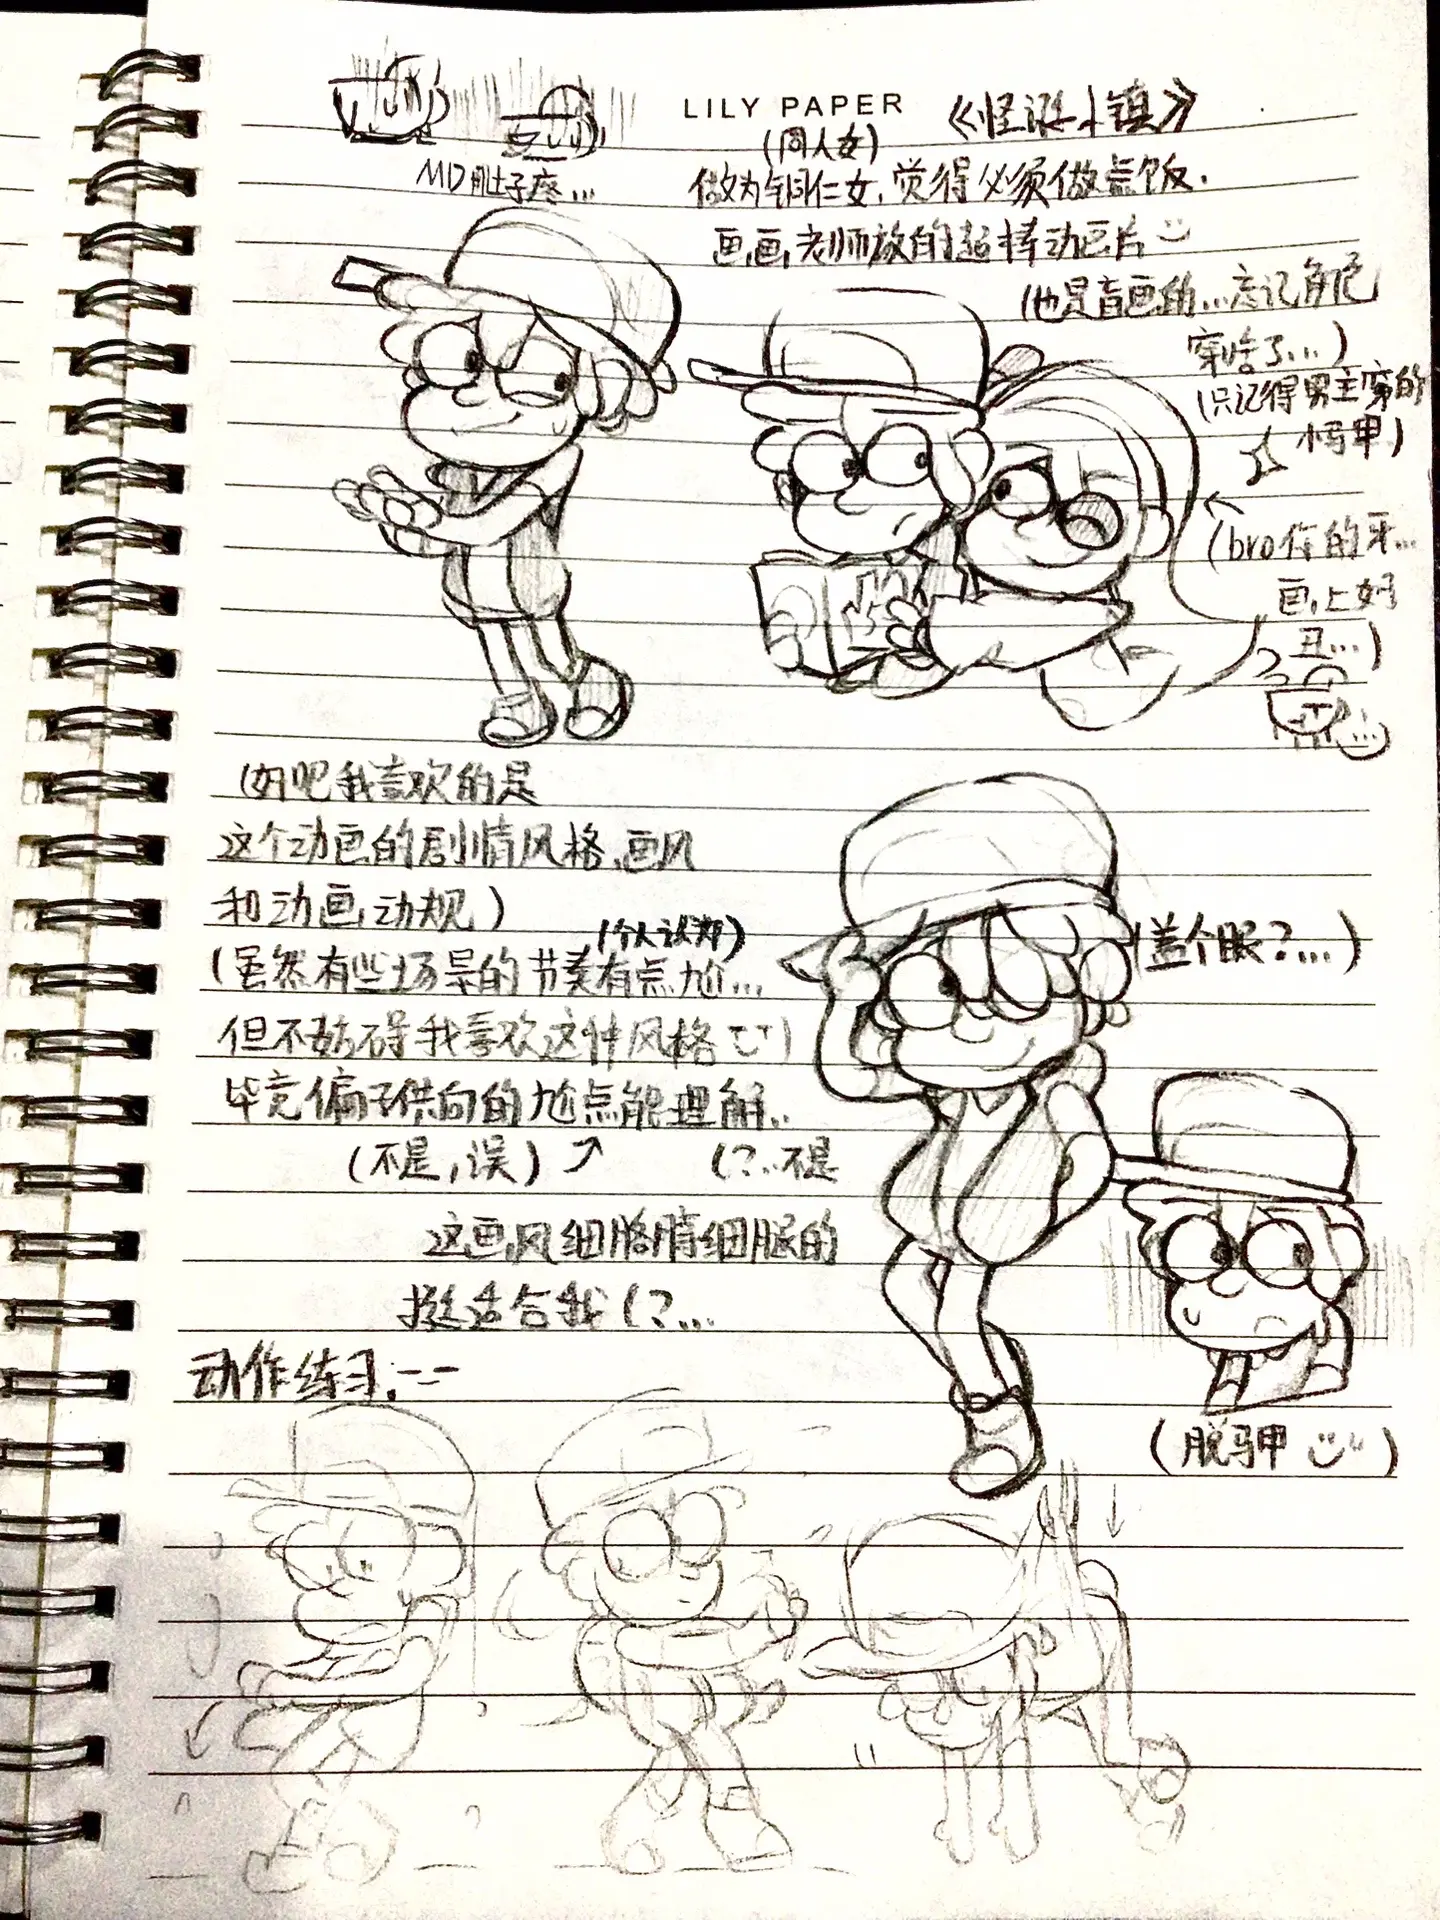 LILY PAPER
《怪诞小镇》
(同人女)
MD肚子疼...
做为铜仁女，觉得必须做点饭.
画画老师放的超棒动画片
(也是盲画的...忘记角色
穿啥了...)
(只记得男主穿的
小马甲)
(bro你的牙...
画上好
丑...)
(好吧我喜欢的是
这个动画的剧情风格、画风
和动画动规)
(个人认为)
(虽然有些场景的节奏有点尬...
但不妨碍我喜欢这种风格
毕竟偏子供向的尬点能理解..
(不是，误)
(?...不是
这画风细胳膊细腿的
挺适合我(?...
(盖个眼?...)
动作练习:--
(脱马甲